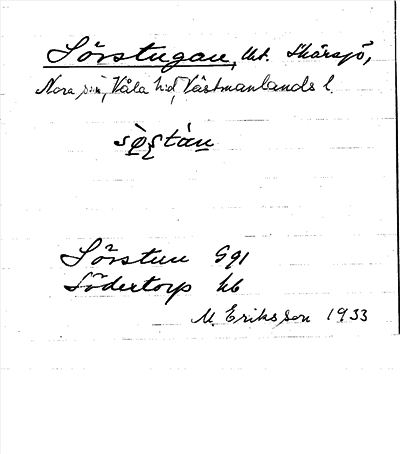 Sörstugan, tht. Skärsjö,
Nora sn, Våla hd, Västmanlands l.
Sörstun Gg1
Södertorp hb
M. Eriksson 1933